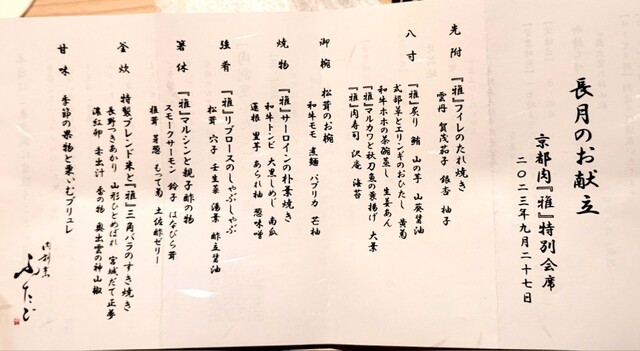 長月のお献立
京都肉『雅』特別会席
二〇二三年九月二十七日
先附 『雅』フィレのたれ焼き
雲丹 賀茂茄子 銀杏 柚子
八寸 『雅』炙り 鮨 山の芋 山葵醤油
式部草とエリンギのおひたし 黄菊
和牛ホホの茶碗蒸し 生姜あん
『雅』マルカワと秋刀魚の巻揚げ 大葉
『雅』肉寿司 沢庵 海苔
御椀 松茸のお椀
和牛モモ 煮麺 パプリカ 芒柚
焼物 『雅』サーロインの朴葉焼き
和牛トンビ 大黒しめじ 南瓜
蓮根 里芋 あられ柚 葱味噌
強肴 『雅』リブロースのしゃぶしゃぶ
松茸 穴子 壬生菜 湯葉 酢立醤油
箸休 『雅』マルシンと親子酢の物
スモークサーモン 鈴子 はなびら茸
椎茸 芽葱 もって菊 土佐酢ゼリー
釜炊 特製ブレンド米と『雅』三角バラのすき焼き
長野つきあかり 山形ひとめぼれ 宮城だて正夢
濃紅卵 赤出汁 香の物 奥出雲の神山椒
甘味 季節の果物と栗いむブリュレ
肉割烹
ふたご